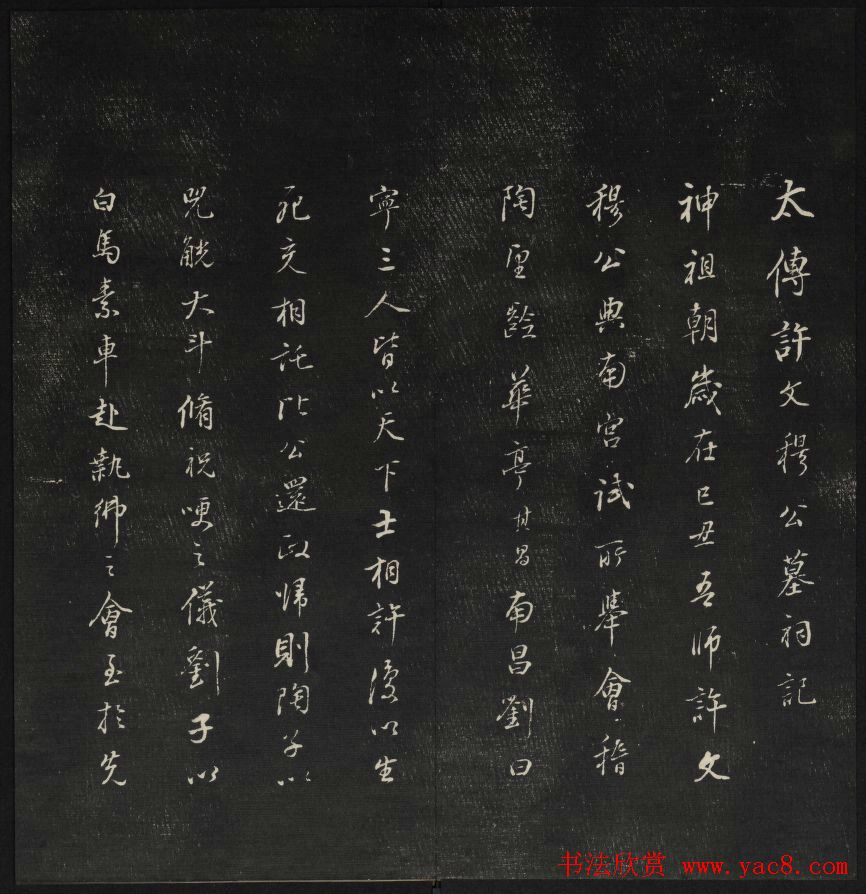 太傅許文穆公墓祠記
神祖朝歲在己丑吾師許文
穆公典南宮試所舉會稽
陶望齡華亭其昌南昌劉曰
寧三人皆以天下士相許復以生
死交相託比公還政歸則陶子以
兕觥大斗脩祝哽之儀劉子以
白馬素車赴執紼之會至於先
书法欣赏 www.yac8.com